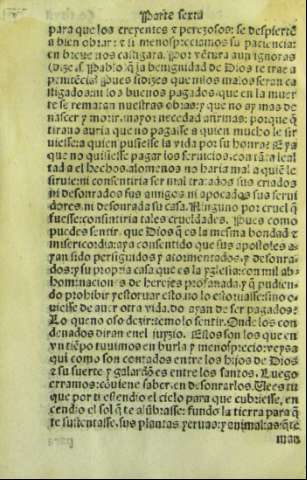 Parte sexta
para que los creyentes y perezosos: se despierten
a bien obrar: e si menospreciamos su paciencia:
en breue nos castigara. Por vẽtura aun ignoras
dize. s. Pablo q̃ la benignidad de Dios te trae a
penitẽcia? Pues si dizes que ni los malos seran ca
stigados: ni los buenos pagados: que en la muer
te se rematan nuestras obras: y que no ay mas de
nascer y morir. mayor necedad afirmas: porque q̃
tirano auria que no pagasse a quien mucho le sir
uiesse: a quien pusiesse la vida por su honra? E ya
que no quisiesse pagar los seruicios. con tãta leal
tad a el hechos. alomenos no haria mal a quiẽ le
sirue: ni consentiria ser mal tratados sus criados
ni desonrados sus amigos ni apocados sus serui
dores. ni desonrada su casa. Ninguno por cruel q̃
fuesse: consintiria tales crueldades. Pues como
puedes sentir. que Dios q̃ es la mesma bondad e
misericordia: aya consentido que sus apostoles a
yan sido perseguidos y atormentados. y desonra
dos: y su propria casa que es la yglesia: con mil ab
hominaciones de herejes profanada. y q̃ pudien
do prohibir y estoruar esto. no lo estoruasse: si no o
uiesse de auer otra vida. do ayan de ser pagados?
Lo que no oso dezir: temo lo sentir. Onde los con
denados diran enel juyzio. Estos son los que en
vn tiẽpo tuuimos en burla y menosprecio: veys a
qui como son contados entre los hijos de Dios
e su suerte y galardõ es entre los santos. Luego
erramos: cõuiene saber. en desonrarlos. Uees tu
que por ti estendio el cielo para que cubriesse, en
cendio el sol q̃ te alũbrasse: fundo la tierra para q̃
te sustentasse. sus plantas yeruas: y animalias: q̃ te
man